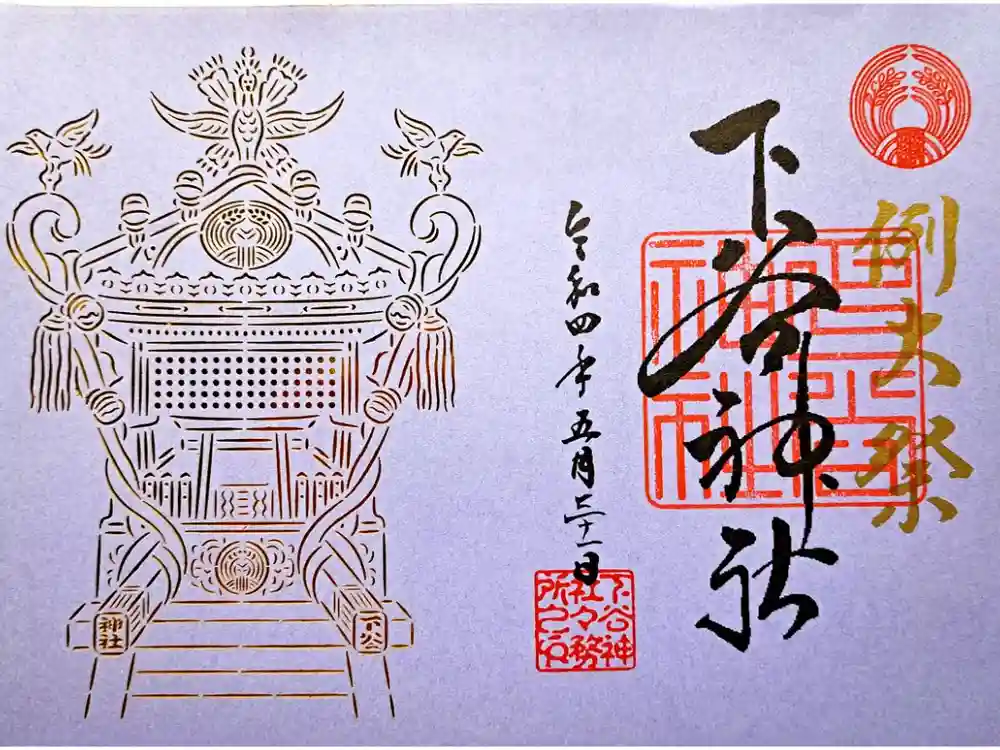 例大祭
下谷神社
令和四年五月三十一日
下谷神
社々務
所之印
下谷
神社